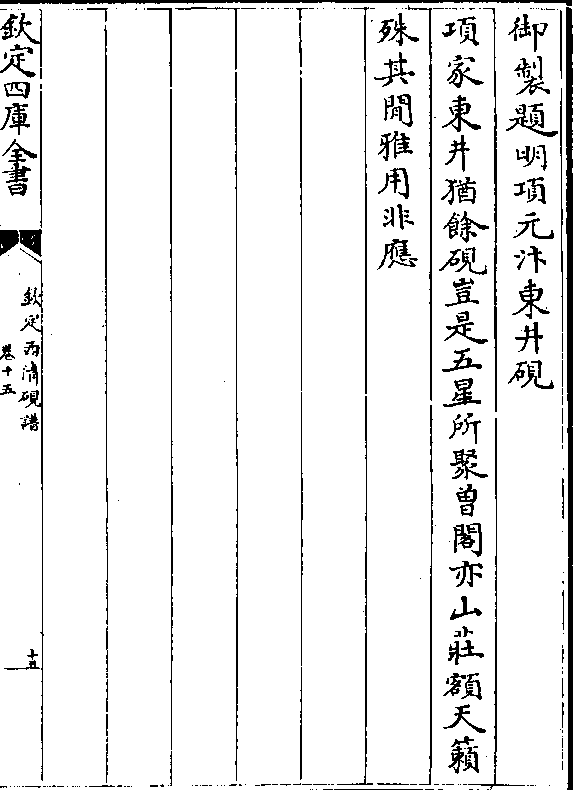 御製題明項元汴東井硯
項家東井猶餘硯豈是五星所聚曽閣亦山莊額天籟
殊其閒雅用非應
欽定四庫全書
欽定西清硯譜
卷十五
十五